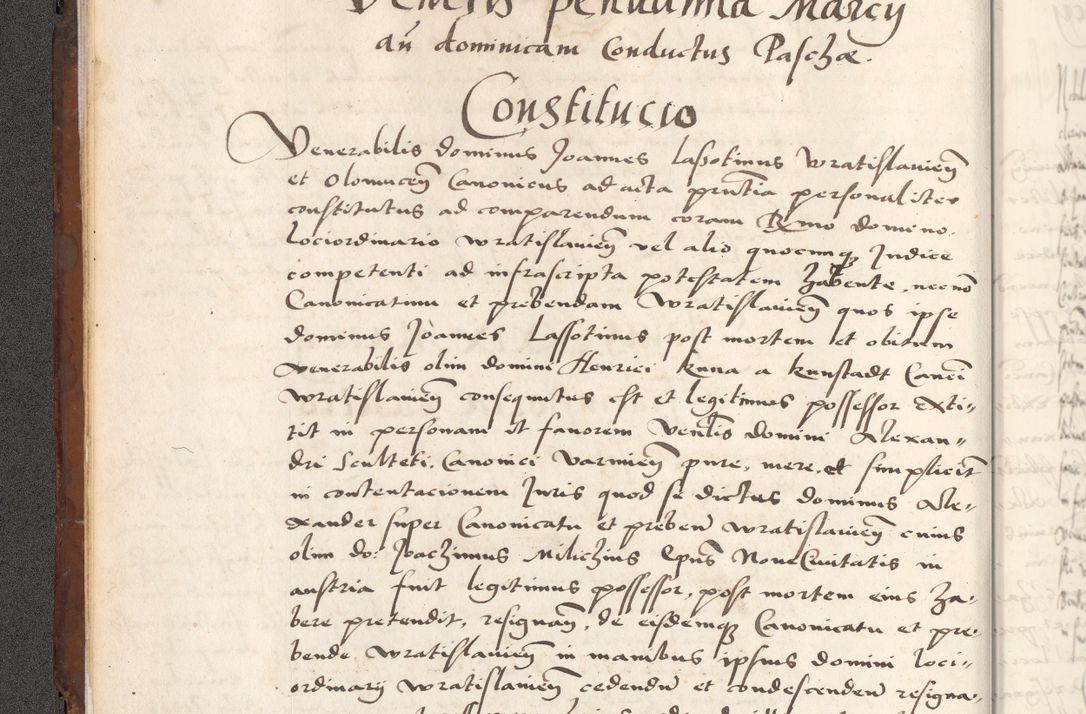 Veneris penultima Marcÿ
añ dominicam Conductus Paschæ.
Constitucio
Venerabilis dominus Joannes Lassotinus Wratislavieñ
et Olomuceñ Canonicus ad acta pñtia personaliter
constitutus ad comparendum coram Rmo domino.
Lociordinario Wratislavieñ vel alio quocunqꝫ Judice
competenti ad infrascripta potestatem habente, necnõ
Canonicatum et prebendam Wratislavieñ quos ipse
dominus Joannes Lassotinus post mortem et obitum
Venerabilis olim domini Henrici Kuna a Kunstadt Canci
Wratislavieñ consequutus est et legitimus possessor exti-
tit in personam et favorem Venlis domini Alexan-
dri Sculteti, Canonici Varmieñ pure, mere, et simplicit
in contentacionem Juris quod se dictus dominus Ale-
xander super Canonicatu et preben Wratislavieñ cuius
olim do: Joachimus Milichius Epus Noue Civitatis in
austria fuit legitimus possessor, post mortem eius ha-
bere pretendit, resignañ, de eisdemqꝫ Canonicatu et pre-
bende Wratislavieñ in manibus ipsius domini loci-
ordinarÿ Wratislavieñ cedendũ et condescendeñ resigna-